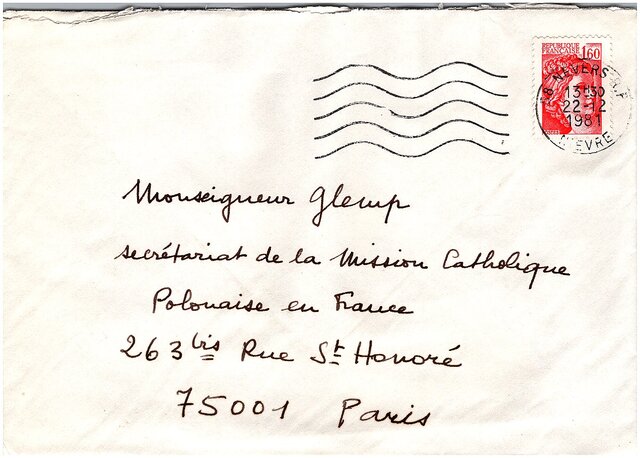 REPUBLIQUE
FRANÇAISE
1,60
58 NEVERS R.P.
13H30
22-12
1981
NIEVRE
Monseigneur Glemp
secrétariat de la Mission Catholique
Polonaise en France
263 bis Rue St Honoré
75001 Paris